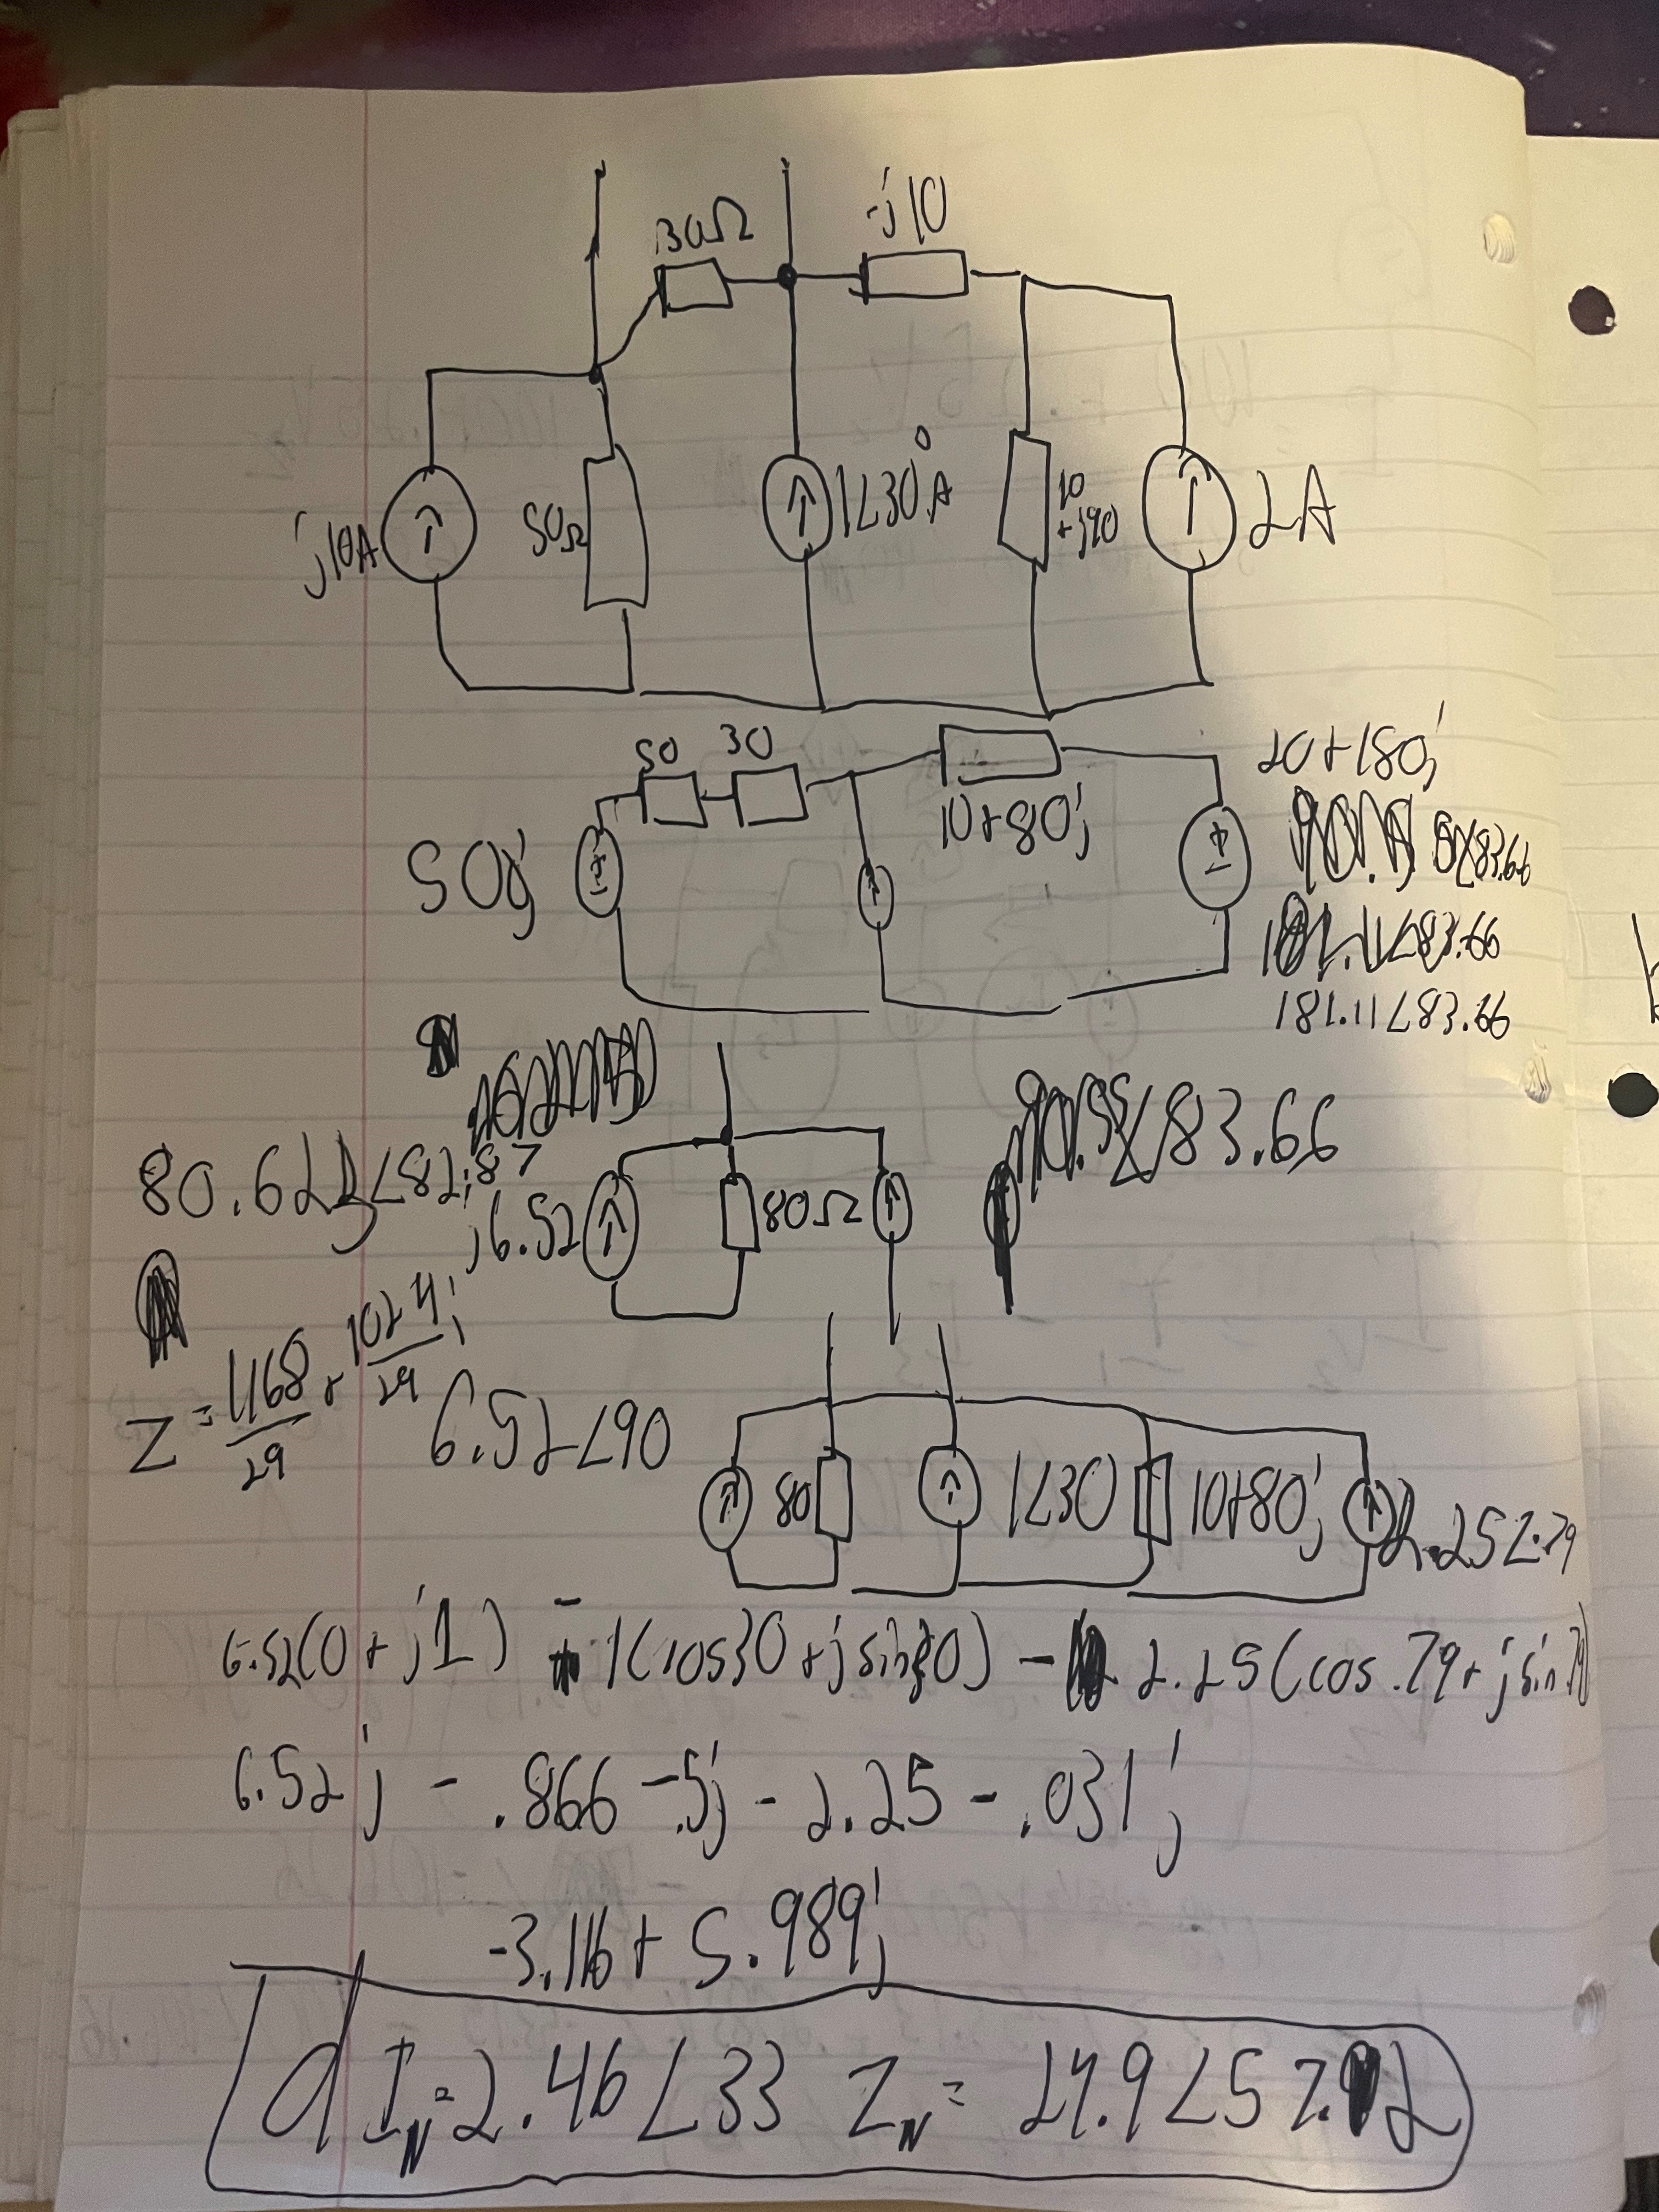 30Ω -j10
j10A 50Ω 1∠30°A 10 +j90 2A
50 30
500j 10+80j 20+180j
181.11∠83.66
80.623∠82.87
j6.52 80Ω 90.55∠83.66
Z = 1168/29 + 1024/29 j
6.52∠90 80 1∠30 10+80j 2.25∠.79
6.52(0+j1) - 1(cos30+jsin30) - 2.25(cos.79+jsin.79)
6.52j - .866 - .5j - 2.25 - .031j
-3.116 + 5.989j
d I_N = 2.46∠33 Z_N = 24.9∠57.2